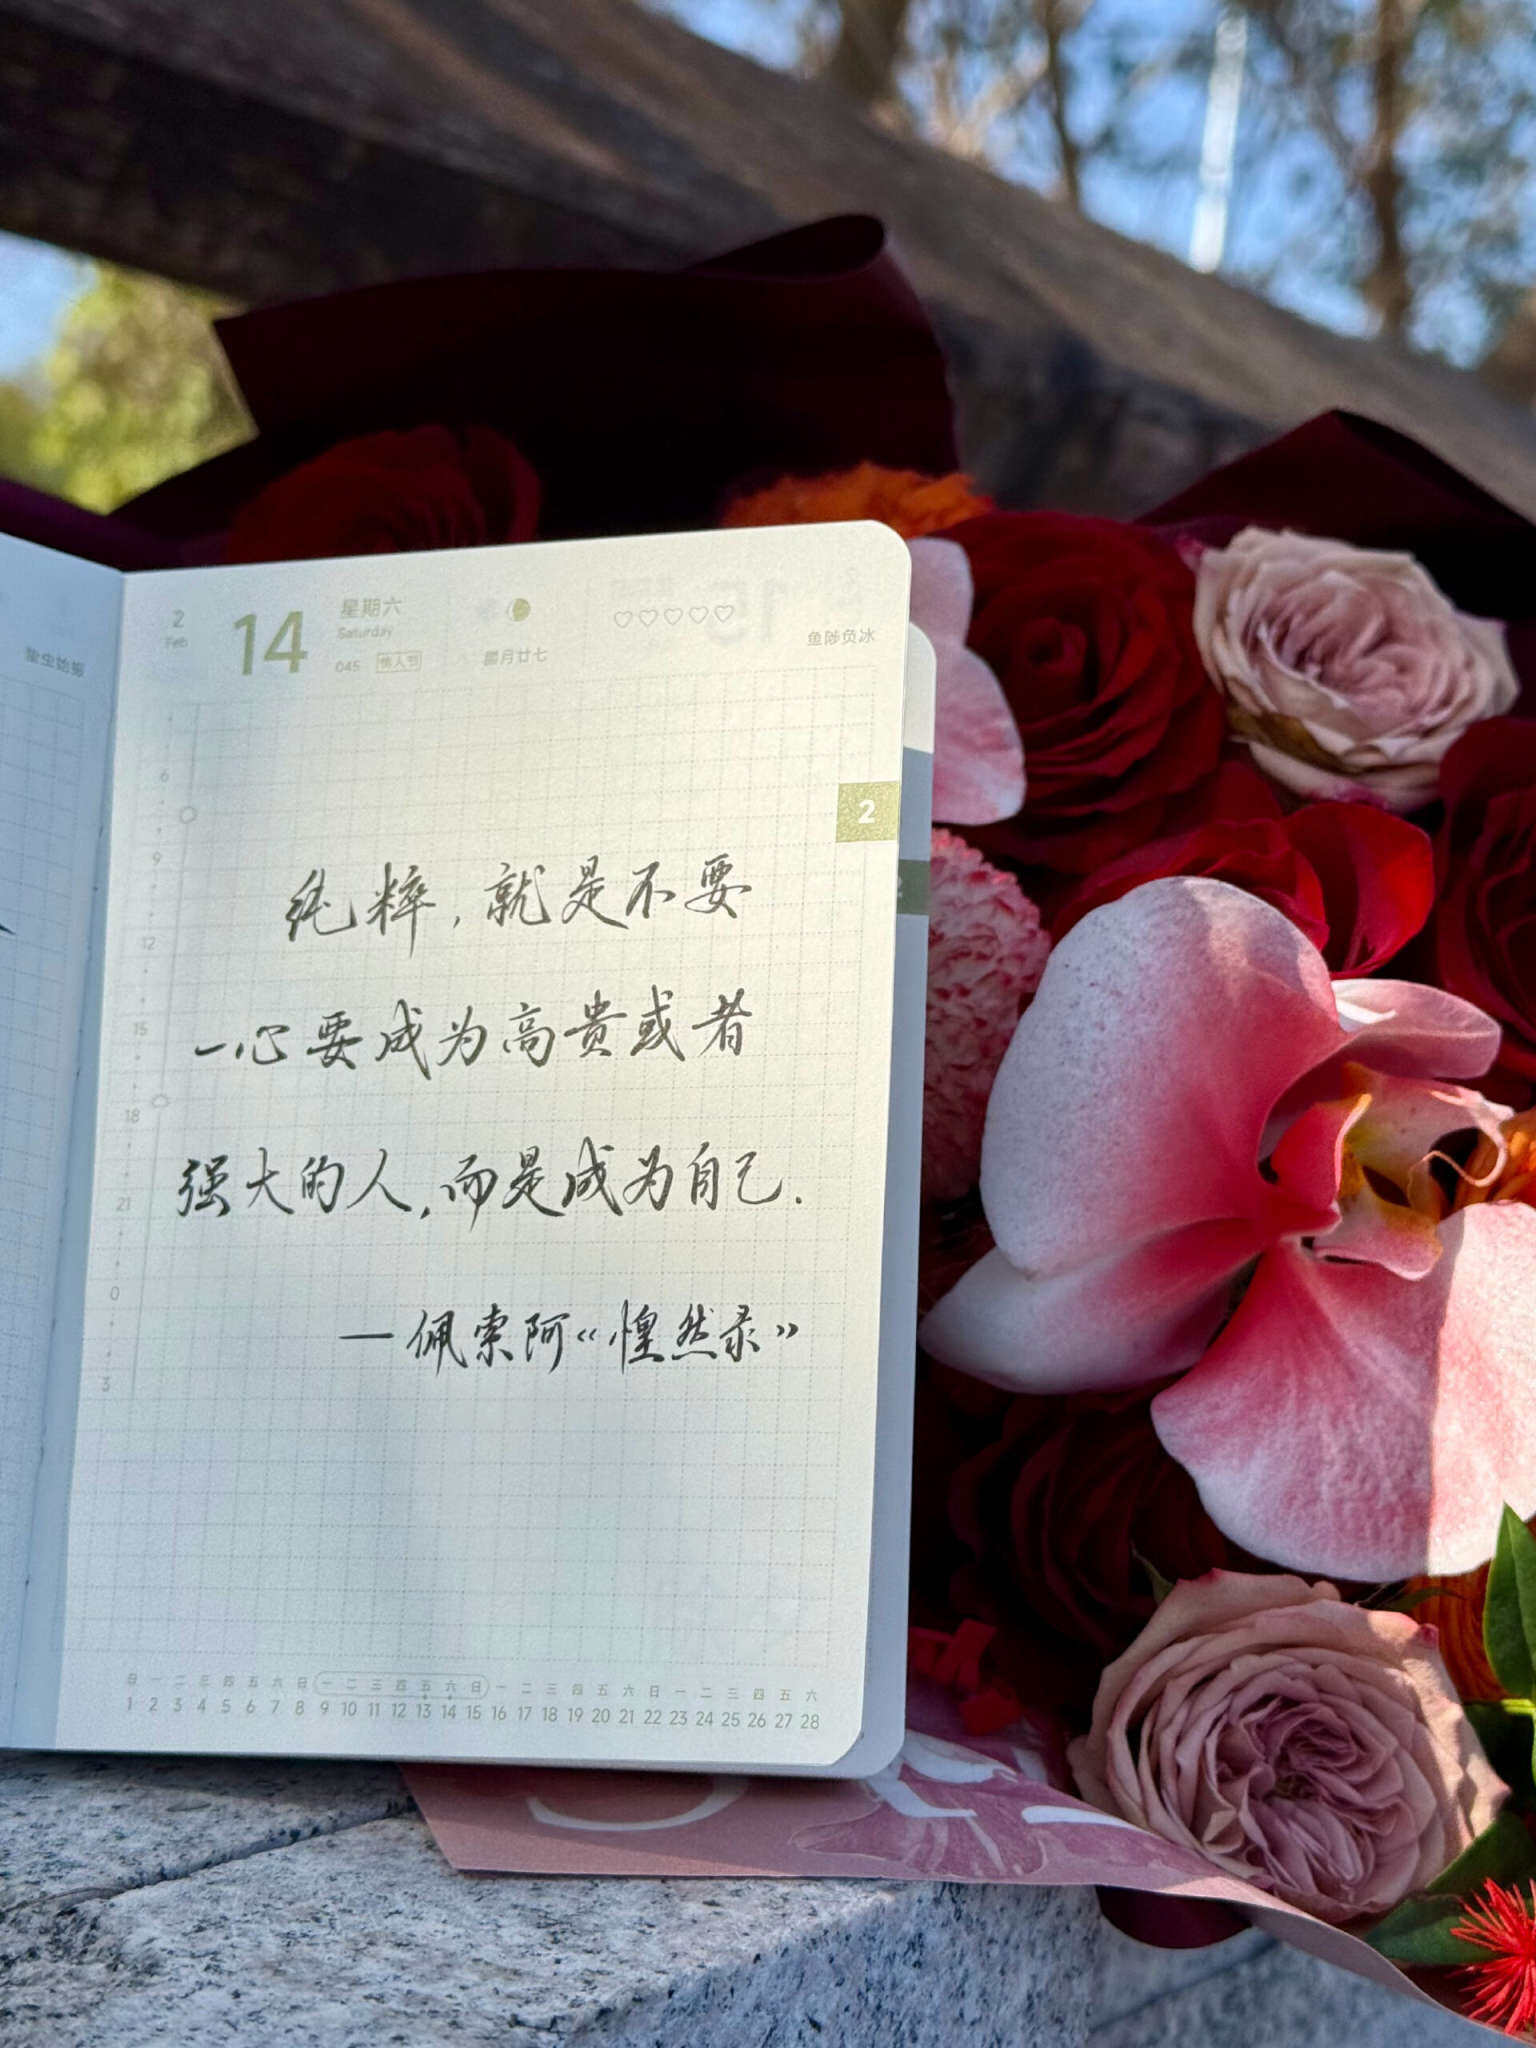 蛰虫始振
2
Feb
14
星期六
Saturday
045 情人节
腊月廿七
鱼陟负冰
2
6
9
12
15
18
21
0
3
纯粹,就是不要
一心要成为高贵或者
强大的人,而是成为自己.
—佩索阿《惶然录》
日 一 二 三 四 五 六 日 一 二 三 四 五 六 日 一 二 三 四 五 六 日 一 二 三 四 五 六
1 2 3 4 5 6 7 8 9 10 11 12 13 14 15 16 17 18 19 20 21 22 23 24 25 26 27 28